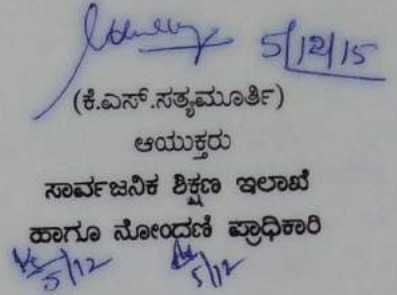 5/12/15
(ಕೆ.ಎಸ್.ಸತ್ಯಮೂರ್ತಿ)
ಆಯುಕ್ತರು
ಸಾರ್ವಜನಿಕ ಶಿಕ್ಷಣ ಇಲಾಖೆ
ಹಾಗೂ ನೋಂದಣಿ ಪ್ರಾಧಿಕಾರಿ
5/12 5/12